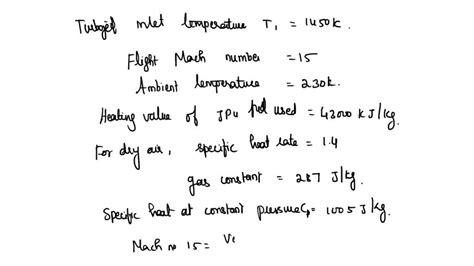 Turbojet inlet temperature T₁ = 1450k.
Flight Mach number = 15
Ambient temperature = 230k.
Healing value of JP4 fuel used = 43000 KJ/kg.
For dry air, specific heat rate = 1.4
gas constant = 287 J/kg.
Specific heat at constant pursure Cp = 1005 J/kg.
Mach no 15 =